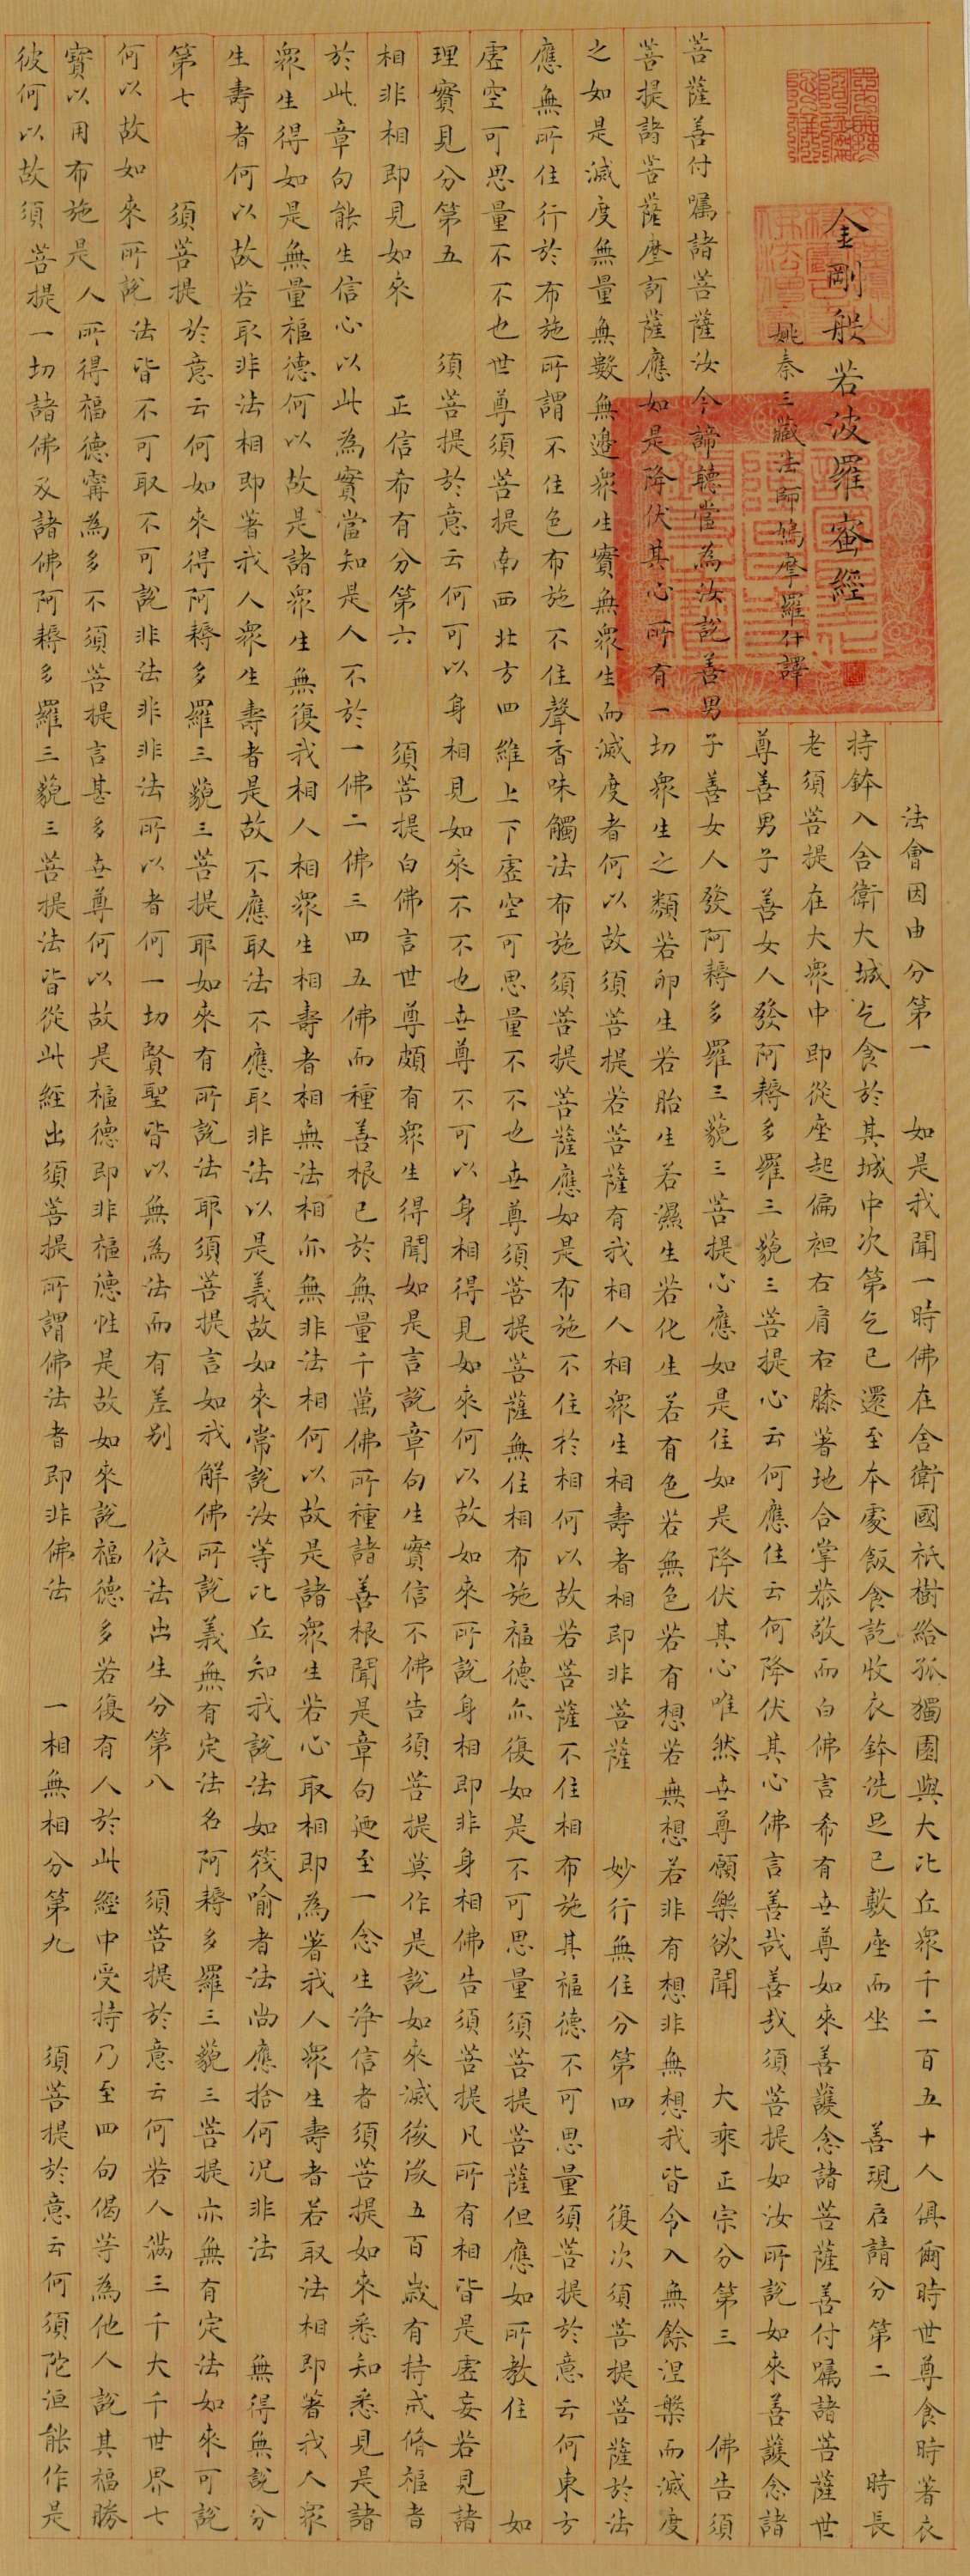 金剛般若波羅蜜經
姚秦三藏法師鳩摩羅什譯
法會因由分第一 如是我聞一時佛在舍衛國祇樹給孤獨園與大比丘眾千二百五十人俱爾時世尊食時著衣
持鉢入舍衛大城乞食於其城中次第乞已還至本處飯食訖收衣鉢洗足已敷座而坐 善現启請分第二 時長
老須菩提在大眾中即從座起偏袒右肩右膝著地合掌恭敬而白佛言希有世尊如來善護念諸菩薩善付囑諸菩薩世
尊善男子善女人發阿耨多羅三藐三菩提心云何應住云何降伏其心佛言善哉善哉須菩提如汝所說如來善護念諸
菩薩善付囑諸菩薩汝今諦聽當為汝說善男子善女人發阿耨多羅三藐三菩提心應如是住如是降伏其心唯然世尊願樂欲聞 大乘正宗分第三 佛告須
菩提諸菩薩摩訶薩應如是降伏其心所有一切眾生之類若卵生若胎生若濕生若化生若有色若無色若有想若無想若非有想非無想我皆令入無餘涅槃而滅度
之如是滅度無量無數無邊眾生實無眾生而滅度者何以故須菩提若菩薩有我相人相眾生相壽者相即非菩薩 妙行無住分第四 復次須菩提菩薩於法
應無所住行於布施所謂不住色布施不住聲香味觸法布施須菩提菩薩應如是布施不住於相何以故若菩薩不住相布施其福德不可思量須菩提於意云何東方
虛空可思量不不也世尊須菩提南西北方四維上下虛空可思量不不也世尊須菩提菩薩無住相布施福德亦復如是不可思量須菩提菩薩但應如所教住 如
理實見分第五 須菩提於意云何可以身相見如來不不也世尊不可以身相得見如來何以故如來所說身相即非身相佛告須菩提凡所有相皆是虛妄若見諸
相非相即見如來 正信希有分第六 須菩提白佛言世尊頗有眾生得聞如是言說章句生實信不佛告須菩提莫作是說如來滅後後五百歲有持戒脩福者
於此章句能生信心以此為實當知是人不於一佛二佛三四五佛而種善根已於無量千萬佛所種諸善根聞是章句迺至一念生淨信者須菩提如來悉知悉見是諸
眾生得如是無量福德何以故是諸眾生無復我相人相眾生相壽者相無法相亦無非法相何以故是諸眾生若心取相即為著我人眾生壽者若取法相即著我人眾
生壽者何以故若取非法相即著我人眾生壽者是故不應取法不應取非法以是義故如來常說汝等比丘知我說法如筏喻者法尚應捨何況非法 無得無說分
第七 須菩提於意云何如來得阿耨多羅三藐三菩提耶如來有所說法耶須菩提言如我解佛所說義無有定法名阿耨多羅三藐三菩提亦無有定法如來可說
何以故如來所說法皆不可取不可說非法非非法所以者何一切賢聖皆以無為法而有差別 依法出生分第八 須菩提於意云何若人滿三千大千世界七
寶以用布施是人所得福德寧為多不須菩提言甚多世尊何以故是福德即非福德性是故如來說福德多若復有人於此經中受持乃至四句偈等為他人說其福勝
彼何以故須菩提一切諸佛及諸佛阿耨多羅三藐三菩提法皆從此經出須菩提所謂佛法者即非佛法 一相無相分第九 須菩提於意云何須陀洹能作是